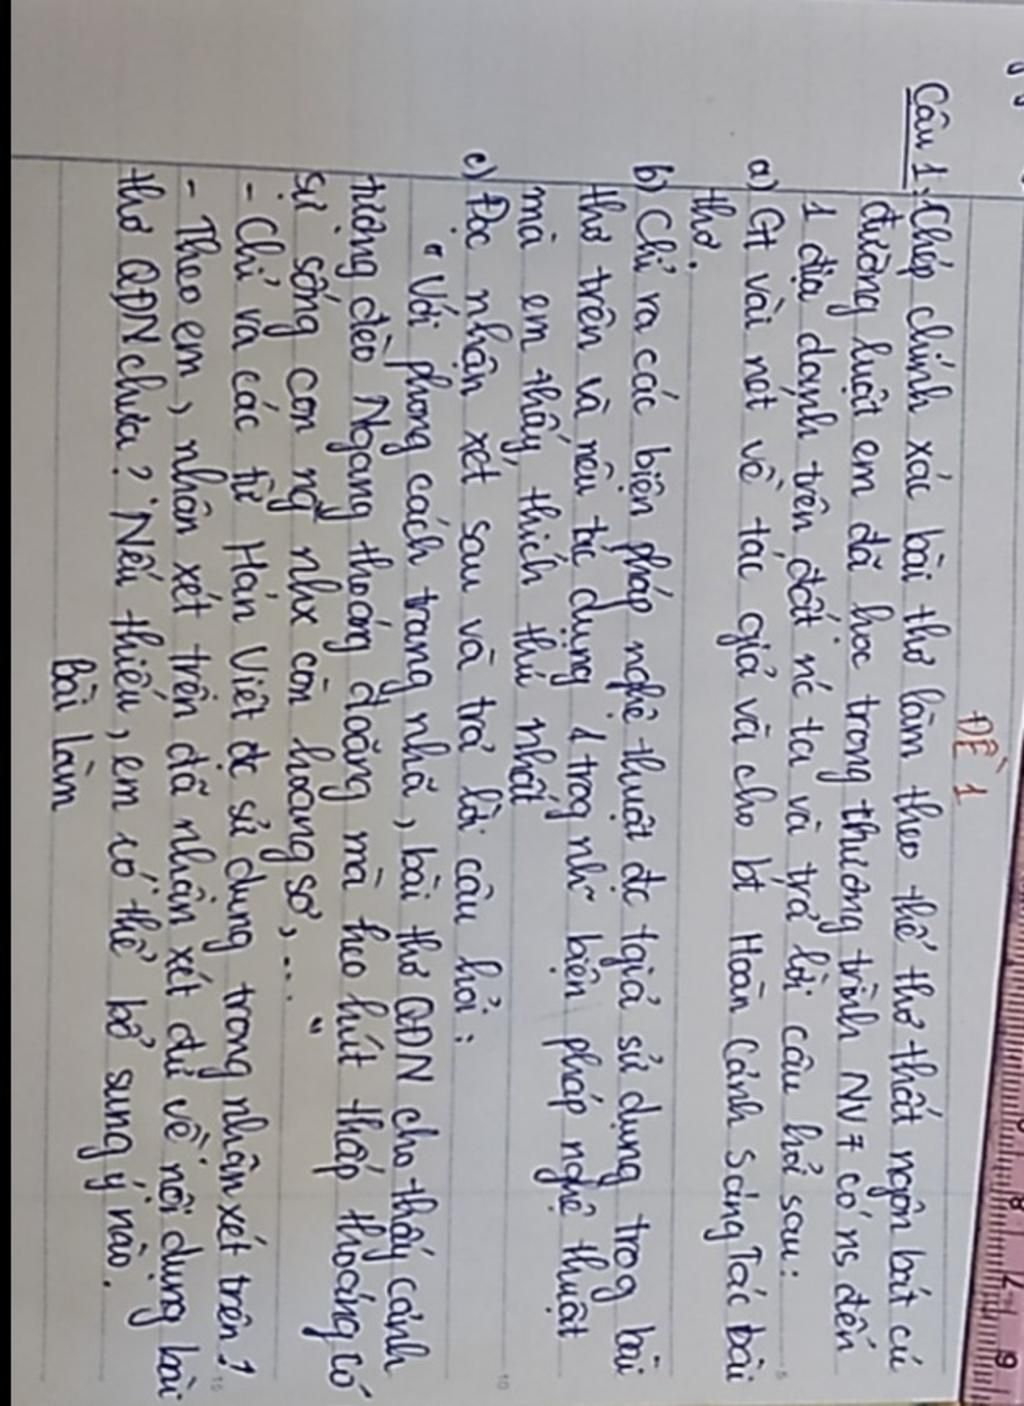 ĐỀ 1
Câu 1: Chép chính xác bài thơ làm theo thể thơ thất ngôn bát cú
đường luật em đã học trong thương trình NV7 có ns đến
1 địa danh trên đất nc ta và trả lời câu hỏi sau:
a) Gt vài nét về tác giả và cho bt Hoàn Cảnh Sáng Tác bài
thơ.
b) Chỉ ra các biện pháp nghệ thuật đc tgiả sử dụng trog bài
thơ trên và nêu tác dụng 1 trog nh~ biện pháp nghệ thuật
mà em thấy thích thú nhất
c) Đọc nhận xét sau và trả lời câu hỏi:
" Với phong cách trang nhã, bài thơ QĐN cho thấy cảnh
tượng đèo Ngang thoáng đoãng mà heo hút thấp thoáng có
sự sống con ng nhx còn hoang sơ,... "
- Chỉ và các từ Hán Việt đc sử dụng trong nhận xét trên?
- Theo em, nhận xét trên đã nhận xét đủ về nội dung bài
thơ QĐN chưa? Nếu thiếu, em có thể bổ sung ý nào.
Bài làm
5
10
15
8
7
9